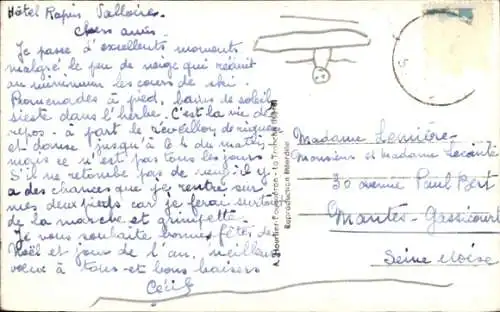 Hôtel Rapin Valloire.
Chers amis.
Je passe d'excellents moments
malgré le peu de neige qui réduit
au minimum les cours de ski.
Promenades à pied, bains de soleil
sieste dans l'herbe. C'est la vie de
repos. à part le réveillon de rigueur
et danse jusqu'à 6 h du matin
mais ce n'est pas tous les jours.
S'il ne retombe pas de neige il y
a des chances que je rentre sur
mes deux pieds car je ferai surtout
de la marche et grimpette.
Je vous souhaite bonnes fêtes de
Noël et jour de l'an, meilleurs
voeux à tous et bons baisers
Cécile
Reproduction Interdite
Madame Lemière
Monsieur et Madame Lecointe
30 avenue Paul Bert
Mantes-Gassicourt
Seine et oise